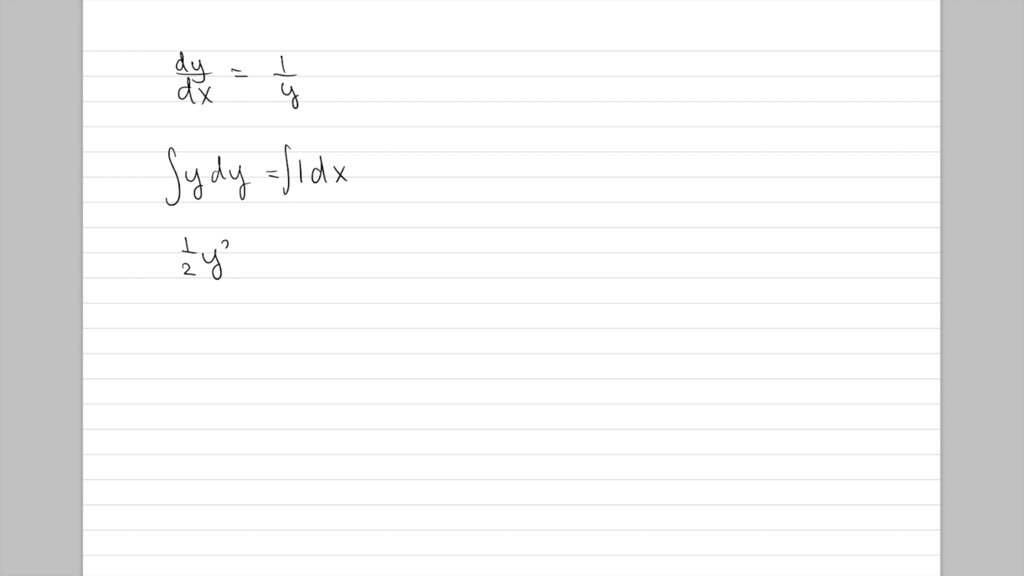 dy/dx = 1/y
∫y dy = ∫1 dx
1/2 y²